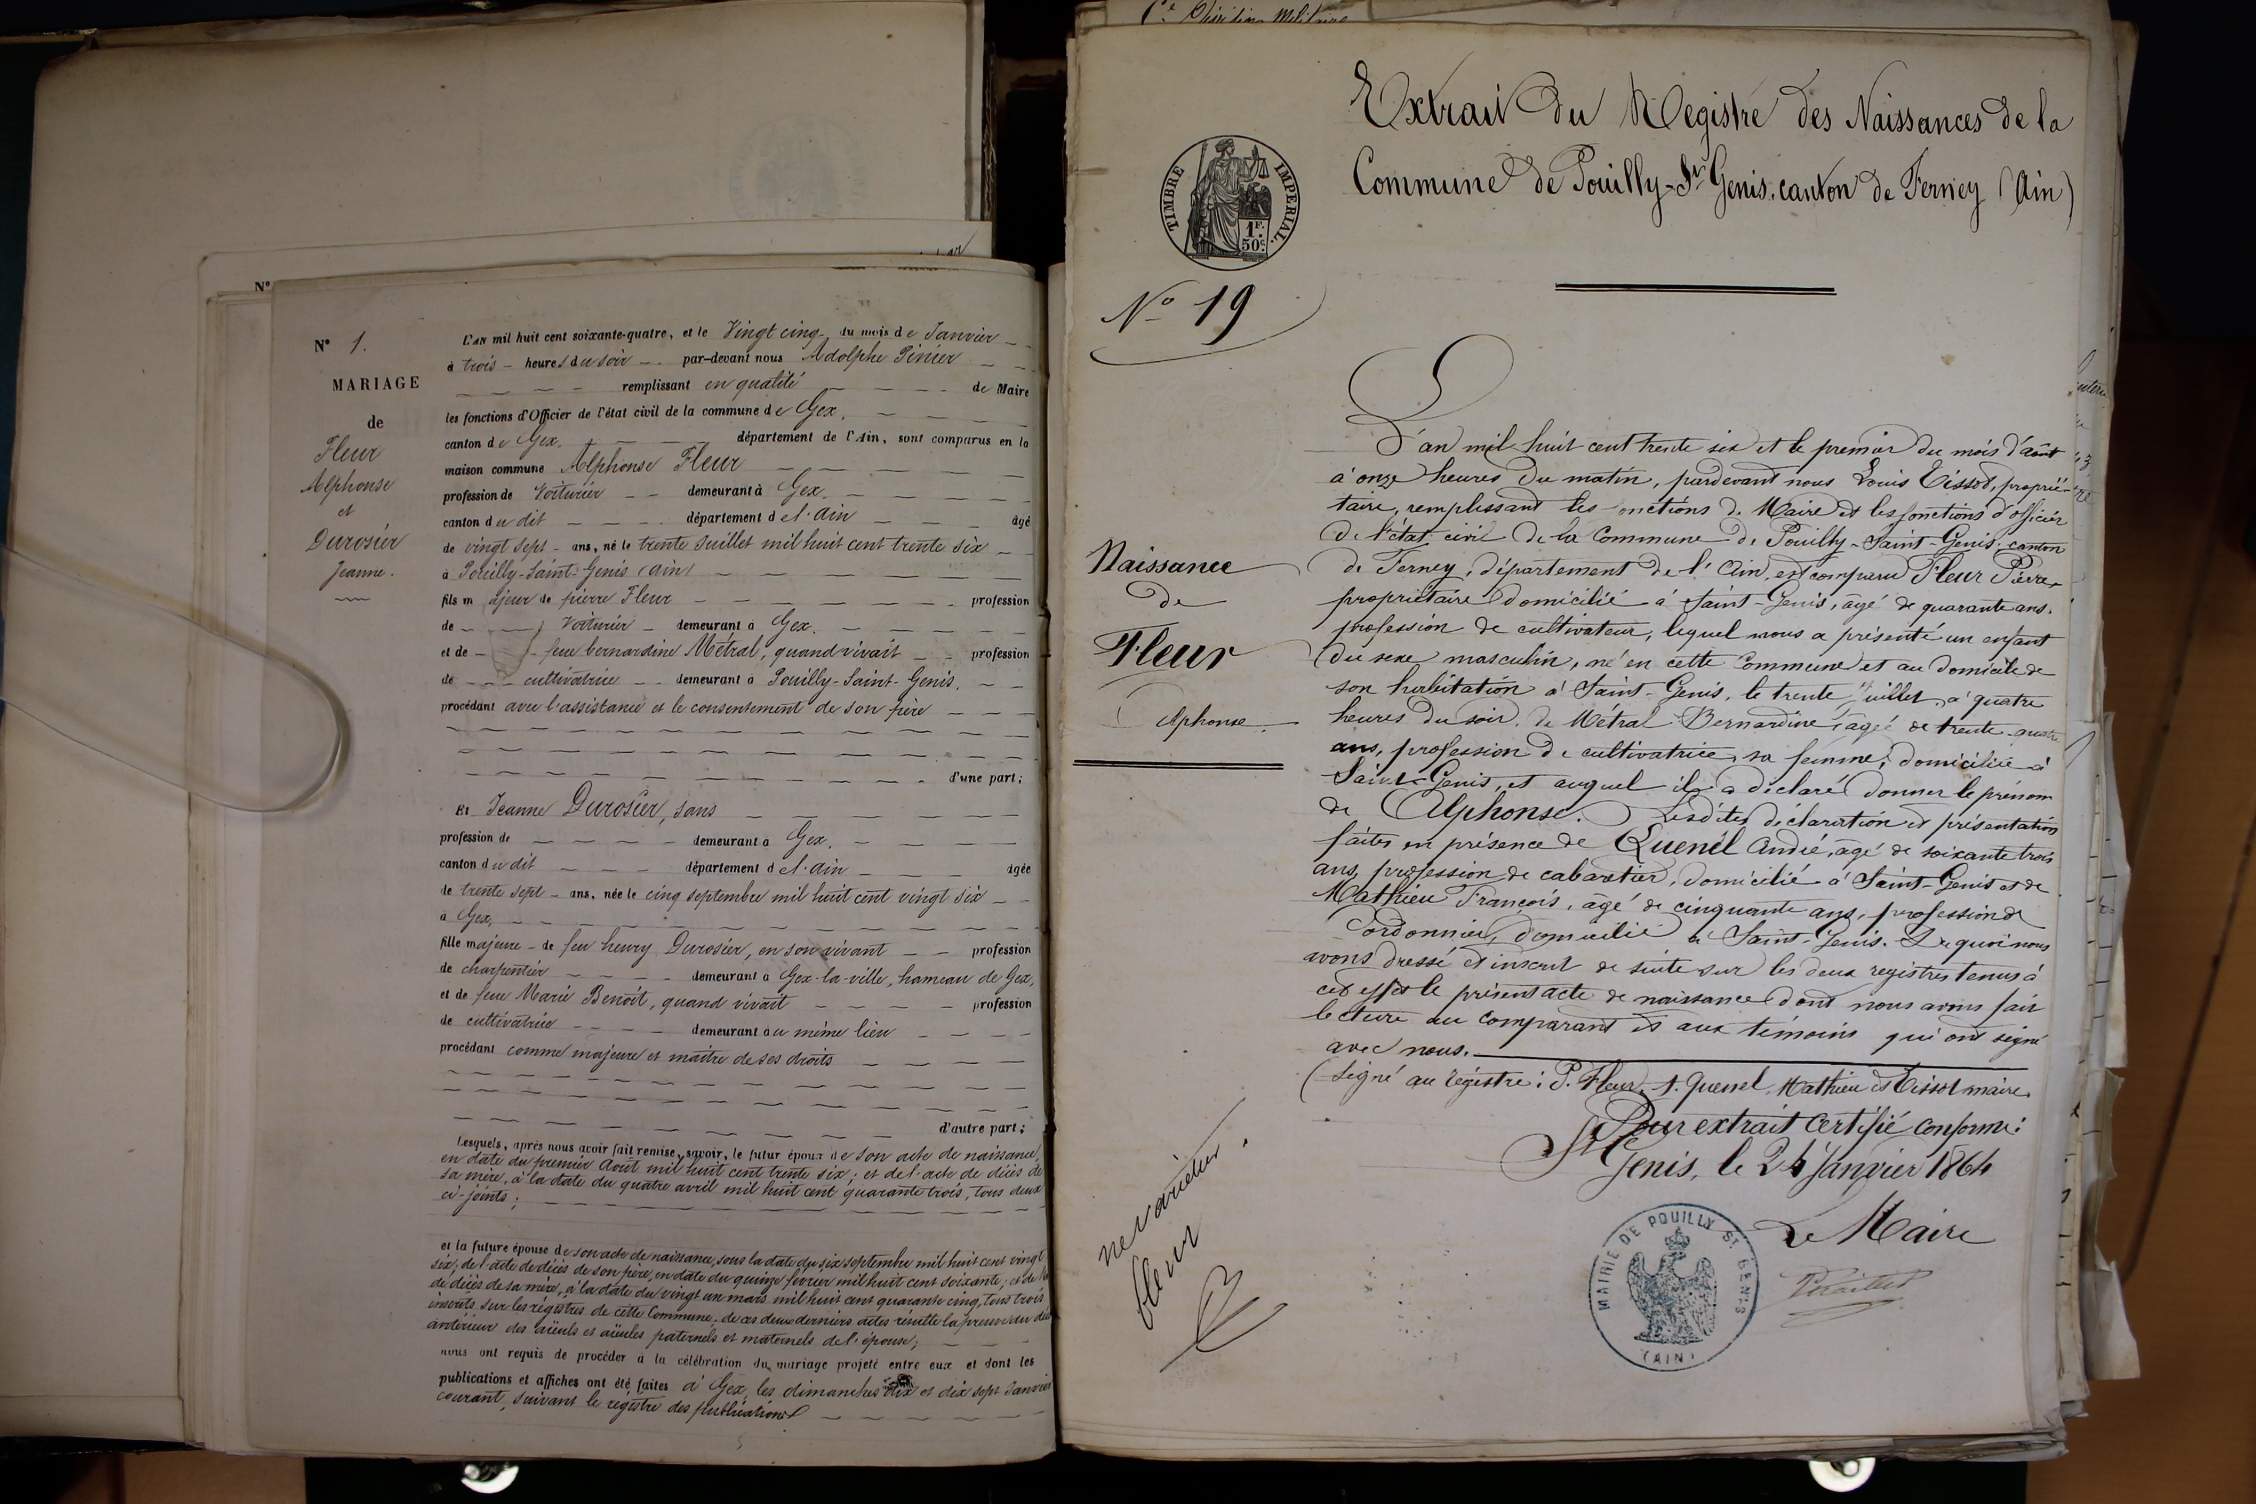 Nº
Nº 1.
MARIAGE
de
Fleur
Alphonse
et
Durosier
Jeanne.
L'AN mil huit cent soixante-quatre, et le Vingt cinq du mois de Janvier
à trois heures du soir par-devant nous Adolphe Pinier
remplissant en qualité de Maire
les fonctions d'Officier de l'état civil de la commune de Gex.
canton de Gex. département de l'Ain, sont comparus en la
maison commune Alphonse Fleur
profession de Voiturier demeurant à Gex.
canton du dit département de l'Ain âgé
de vingt sept ans, né le trente Juillet mil huit cent trente six
à Pouilly-Saint-Genis (ain)
fils majeur de pierre Fleur profession
de voiturier demeurant à Gex.
et de feue bernardine Métral, quand vivait profession
de cultivatrice demeurant à Pouilly-Saint-Genis.
procédant avec l'assistance et le consentement de son père
d'une part;
Et Jeanne Durosier, sans
profession de demeurant à Gex.
canton du dit département de l'ain âgée
de trente sept ans, née le cinq septembre mil huit cent vingt six
à Gex,
fille majeure de feu henry Durosier, en son vivant profession
de charpentier demeurant à Gex-la-ville, hameau de Gex,
et de feue Marie Benoît, quand vivait profession
de cultivatrice demeurant au même lieu
procédant comme majeure et maître de ses droits
d'autre part;
Lesquels, après nous avoir fait remise, savoir, le futur époux de son acte de naissance,
en date du premier Août mil huit cent trente six; et de l'acte de décès de
sa mère, à la date du quatre avril mil huit cent quarante trois, tous deux
ci-joints;
et la future épouse de son acte de naissance, sous la date du six septembre mil huit cent vingt
six; de l'acte de décès de son père, en date du quinze février mil huit cent soixante; et de
de décès de sa mère, à la date du vingt un mars mil huit cent quarante cinq, tous trois
inscrits sur les régistres de cette Commune, de ces deux derniers actes résulte la preuve du
antérieur des aïeuls et aïeules paternels et maternels de l'épouse;
nous ont requis de procéder à la célébration du mariage projeté entre eux et dont les
publications et affiches ont été faites à Gex, les dimanches dix et dix sept Janvier
courant, suivant le régistre des publications
Extrait du Registre des Naissances de la
Commune de Pouilly-St Genis, canton de Ferney (Ain)
TIMBRE IMPERIAL.
1F.
50c.
Nº 19
Naissance
de
Fleur
Alphonse
L'an mil huit cent trente six et le premier du mois d'août
à onze heures du matin, pardevant nous Louis Tissot, proprié-
taire, remplissant les fonctions de Maire et les fonctions d'officier
de l'état civil de la Commune de Pouilly-Saint-Genis, canton
de Ferney, département de l'Ain, est comparu Fleur Pierre
propriétaire domicilié à Saint-Genis, âgé de quarante ans,
profession de cultivateur, lequel nous a présenté un enfant
du sexe masculin, né en cette Commune et au domicile de
son habitation à Saint-Genis, le trente juillet, à quatre
heures du soir, de Métral Bernardine, âgé de trente quatre
ans, profession de cultivatrice, sa femme, domiciliée à
Saint-Genis, et auquel il a déclaré donner le prénom
de Alphonse. Lesdites déclaration et présentation
faites en présence de Quenél André, âgé de soixante trois
ans, profession de cabaretier, domicilié à Saint-Genis et de
Mathieu François, âgé de cinquante ans, profession de
Cordonnier, domicilié à Saint-Genis. De quoi nous
avons dressé et inscrit de suite sur les deux registres tenus à
cet effet le présent acte de naissance dont nous avons fait
lecture au comparant et aux témoins qui ont signé
avec nous.
(Signé au régistre: P. Fleur, A. Quenel, Mathieu et Tissot maire.
Pour extrait certifié conforme:
St Genis, le 24 Janvier 1864
Le Maire
MAIRIE DE POUILLY ST. GENIS
(AIN)
ne varietur.
fleur